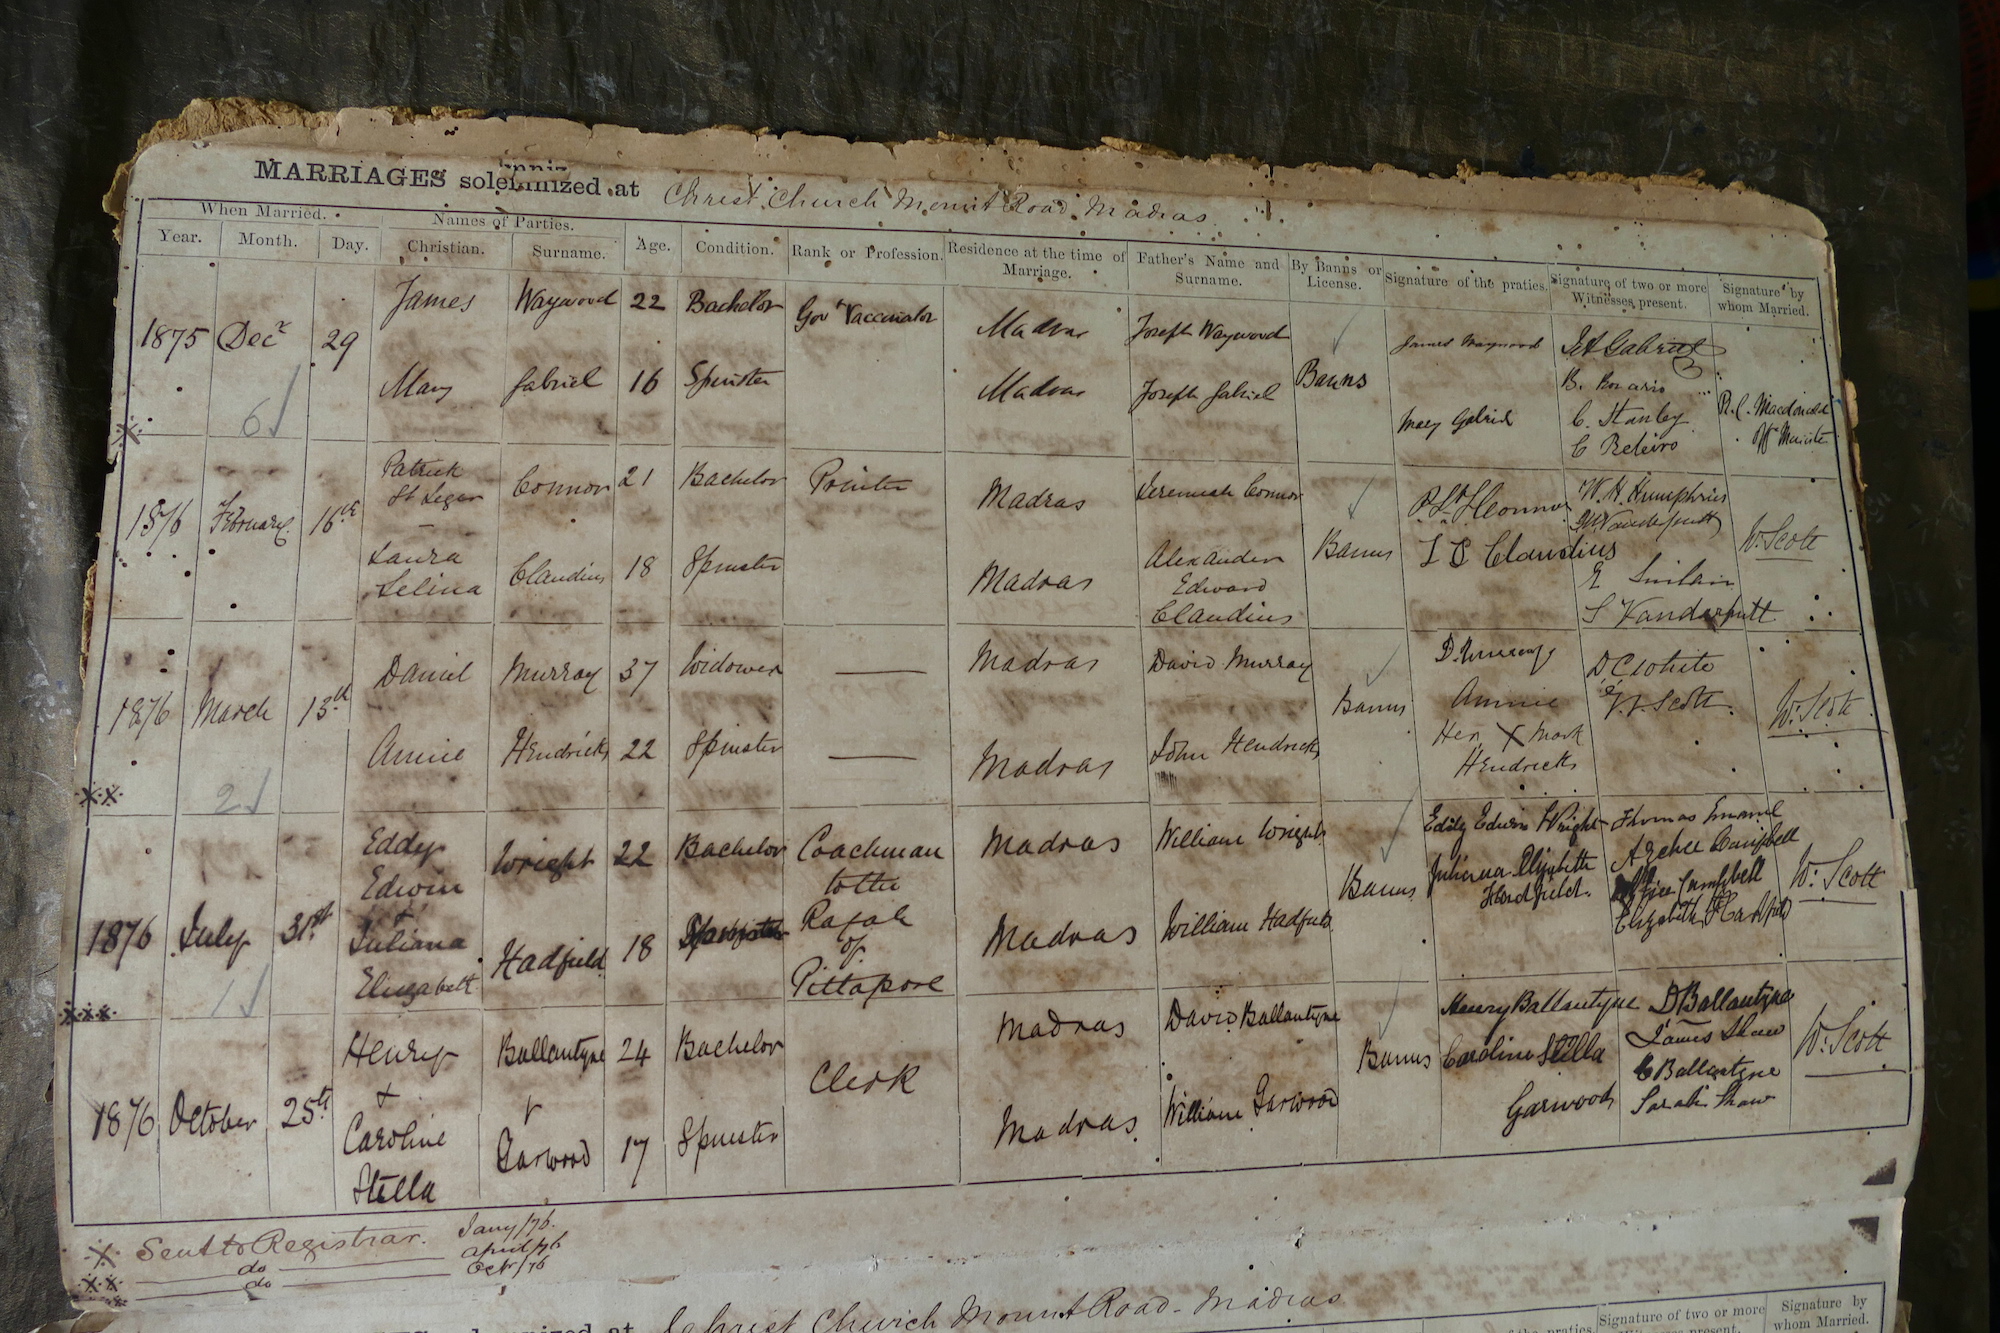 MARRIAGES solemnized at Christ Church Mount Road Madras
When Married. Names of Parties. Age. Condition. Rank or Profession. Residence at the time of Marriage. Father's Name and Surname. By Banns or License. Signature of the praties. Signature of two or more Witnesses present. Signature by whom Married.
Year. Month. Day. Christian. Surname.
James Waywood 22 Bachelor Govt Vaccinator Madras Joseph Waywood James Waywood
1875 Decr 29
Mary Gabriel 16 Spinster Madras Joseph Gabriel Banns Mary Gabriel
6
J A Gabriel
C. Stanley
R. C. Macdonald
Patrick St Leger Connor 21 Bachelor Printer Madras Jeremiah Connor
1876 February 16th
Laura Selina Claudius 18 Spinster Madras Alexander Edward Claudius Banns L C Claudius
W. H. Humphries
S Vanderputt
W. Scott
Daniel Murray 37 Widower — Madras David Murray D. Murray
1876 March 13th
Annie Hendricks 22 Spinster — Madras John Hendricks Banns Annie Her X Mark Hendricks
2
D C White
W. Scott
Eddy Edwin Wright 22 Bachelor Coachman to the Rajah of Pittapore Madras William Wright Eddy Edwin Wright
1876 July 31st
+
Juliana Elizabeth Hadfield 18 Spinster Madras William Hadfield Banns Juliana Elizabeth Hadfield.
1
Thomas Emanuel
Archee Campbell
Alice Campbell
Elizabeth Hadfield
W. Scott
Henry Ballantyne 24 Bachelor Clerk Madras David Ballantyne Henry Ballantyne
1876 October 25th
+
Caroline Stella Garwood 17 Spinster Madras William Garwood Banns Caroline Stella Garwood
D Ballantyne
James Shaw
C Ballantyne
Sarah Shaw
W. Scott
X Sent to Registrar. Jany/76.
XX do April/76
do Octr/76
Christ Church Mount Road - Madras
Signature of two or more
Signature by whom Married.